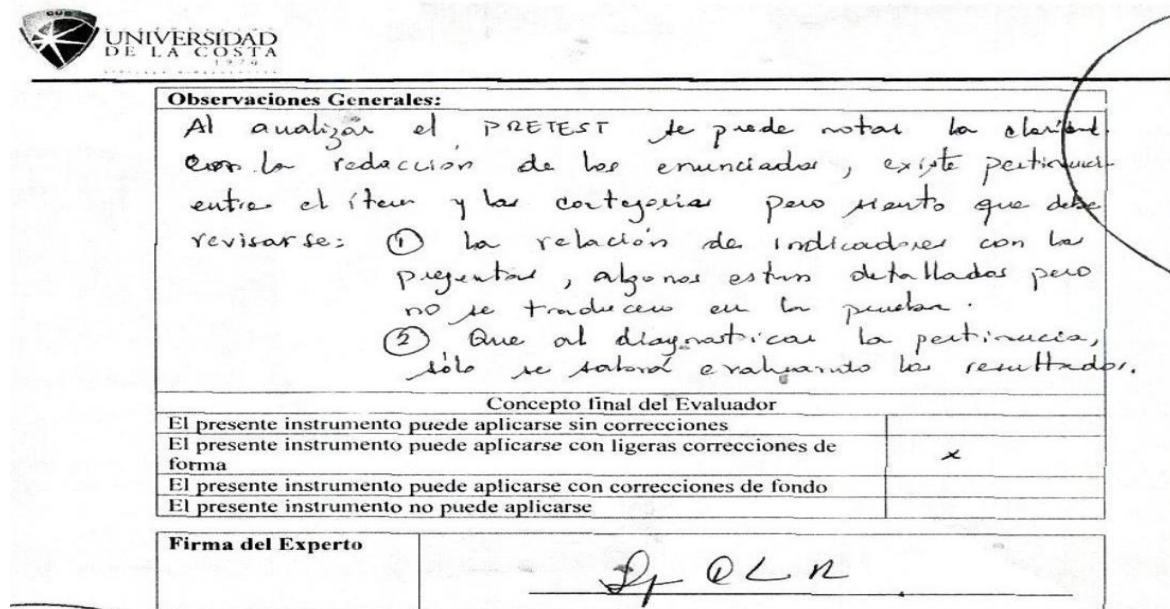 CUC
UNIVERSIDAD
DE LA COSTA
1970
Observaciones Generales:
Al analizar el PRETEST se puede notar la claridad
con la redacción de los enunciados, existe pertinencia
entre el ítem y las categorías pero siento que debe
revisarse: ① La relación de indicadores con las
preguntas, algunos estan detallados pero
no se traducen en la prueba.
② Que al diagnosticar la pertinencia,
sólo se sabrá evaluando los resultados.
Concepto final del Evaluador
El presente instrumento puede aplicarse sin correcciones
El presente instrumento puede aplicarse con ligeras correcciones de
forma x
El presente instrumento puede aplicarse con correcciones de fondo
El presente instrumento no puede aplicarse
Firma del Experto